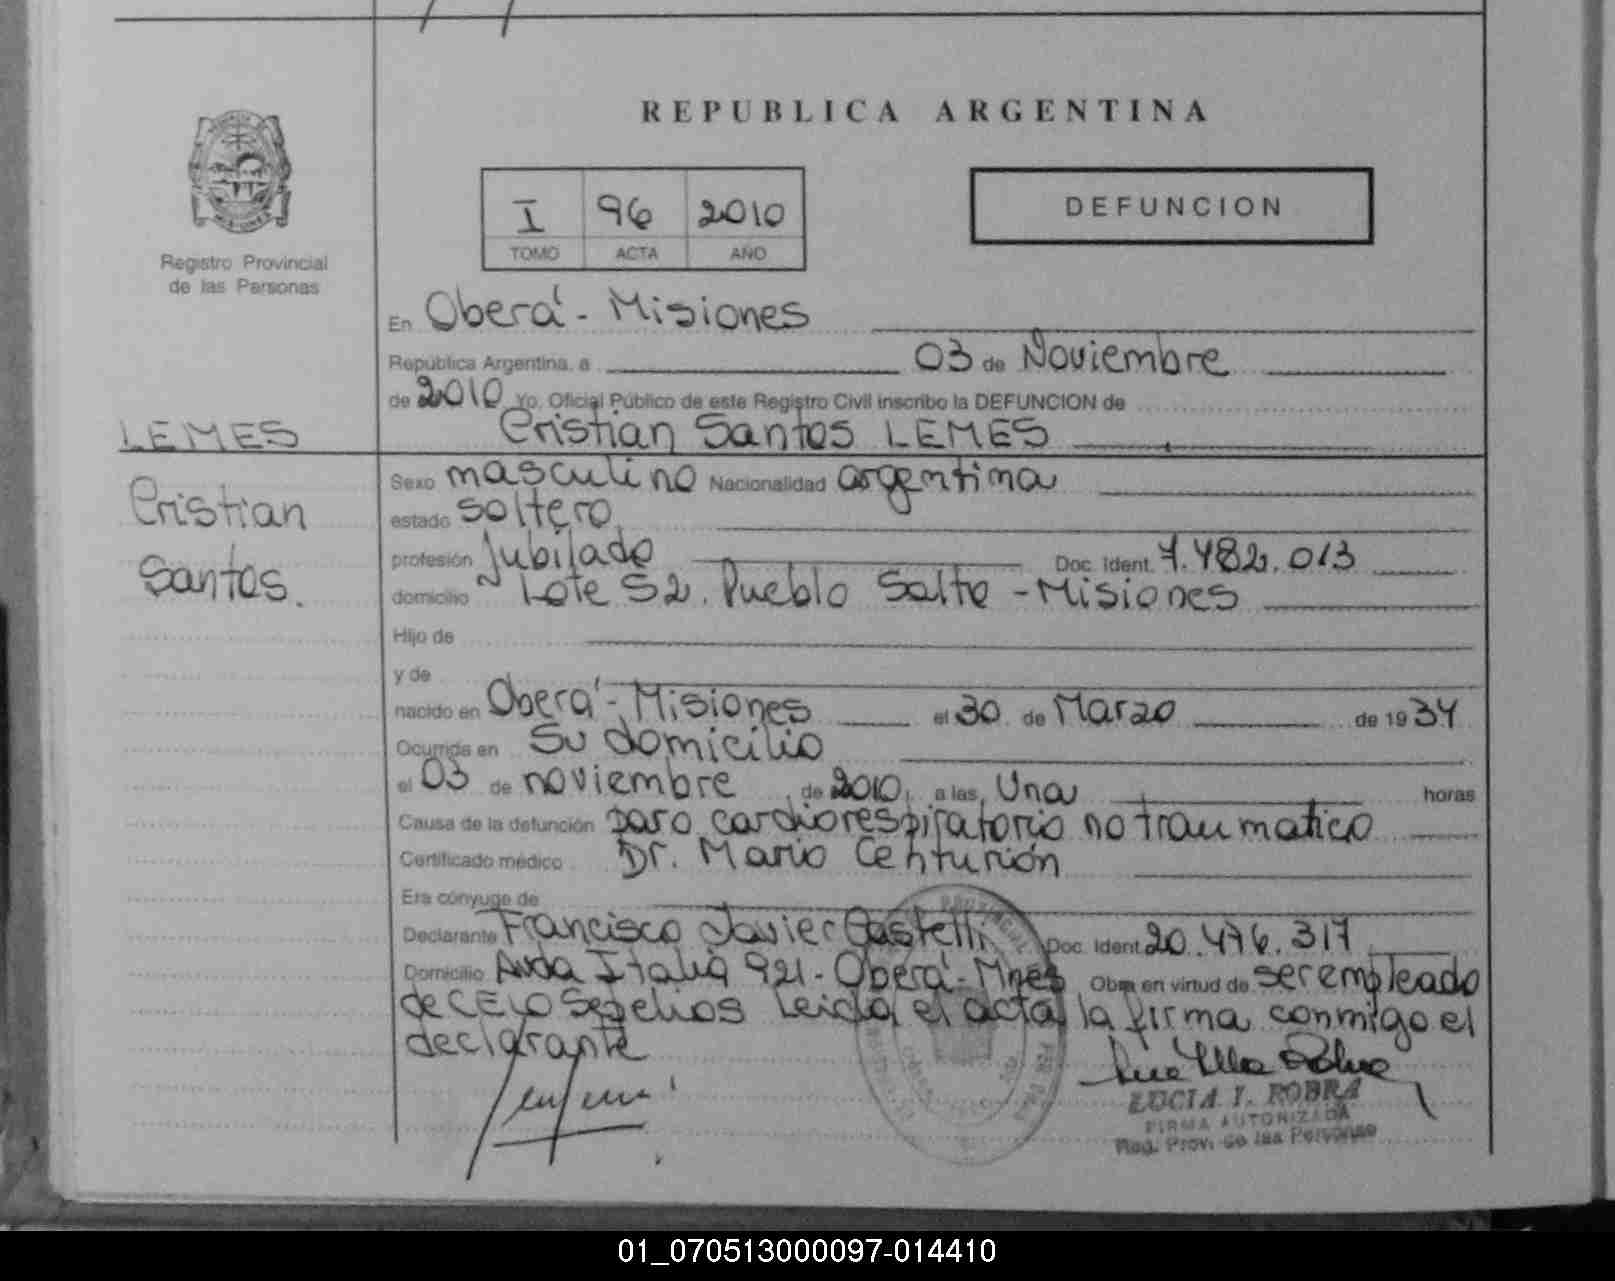 REPUBLICA ARGENTINA
I 96 2010
TOMO ACTA AÑO
DEFUNCION
Registro Provincial
de las Personas
LEMES
Cristian
Santos.
En Oberá - Misiones
República Argentina, a 03 de Noviembre
de 2010 Yo, Oficial Público de este Registro Civil inscribo la DEFUNCION de
Cristian Santos LEMES
Sexo masculino Nacionalidad argentina
estado soltero
profesión Jubilado Doc. Ident. 7.482.013
domicilio Lote 52. Pueblo Salto - Misiones
Hijo de
y de
nacido en Oberá - Misiones el 30 de Marzo de 1934
Ocurrida en Su domicilio
el 03 de noviembre de 2010, a las Una horas
Causa de la defunción paro cardiorespiratorio no traumatico
Certificado médico Dr. Mario Centurión
Era cónyuge de
Declarante Francisco Javier Castelli Doc. Ident. 20.476.317
Domicilio Avda Italia 921 - Oberá - Mnes Obra en virtud de ser empleado
de CELO Sepelios Leida el acta la firma conmigo el
declarante
LUCIA I. ROBRA
FIRMA AUTORIZADA
Reg. Prov. de las Personas
01_070513000097-014410